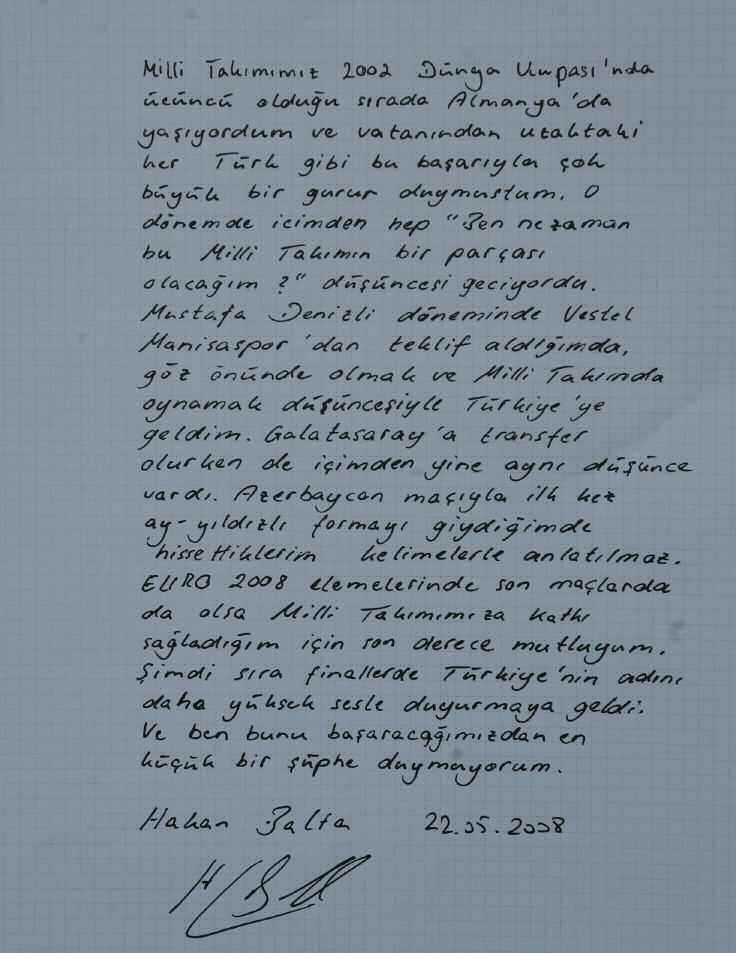 Milli Takımımız 2002 Dünya Kupası'nda
üçüncü olduğu sırada Almanya'da
yaşıyordum ve vatanından uzaktaki
her Türk gibi bu başarıyla çok
büyük bir gurur duymustum. O
dönemde icimden hep "Ben ne zaman
bu Milli Takımın bir parçası
olacağım ?" düşüncesi geciyordu.
Mustafa Denizli döneminde Vestel
Manisaspor'dan teklif aldığımda,
göz önünde olmak ve Milli Takımda
oynamak düşünceşiyle Türkiye'ye
geldim. Galatasaray'a transfer
olurken de içimden yine aynı düşünce
vardı. Azerbaycan maçıyla ilk kez
ay-yıldızlı formayı giydiğimde
hissettiklerim kelimelerle anlatılmaz.
EURO 2008 elemelerinde son maçlarda
da olsa Milli Takımımıza katkı
sağladığım için son derece mutluyum.
Şimdi sıra finallerde Türkiye'nin adını
daha yüksek sesle duyurmaya geldi.
Ve ben bunu başaracağımızdan en
küçük bir şüphe duymuyorum.
Hakan Balta 22.05.2008